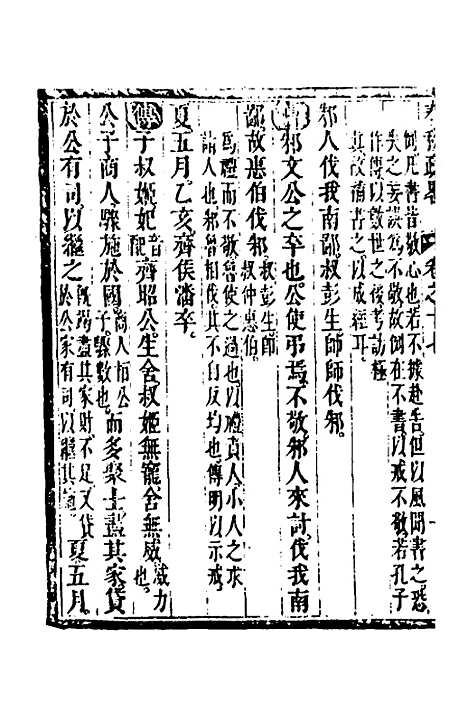 例凡書皆敬心也若不據赴告但以風聞書之恐
失之妄誤爲不敬故例在不書以戒不敬若孔子
作傳以教世之後考訪極
其故道書之以成經耳
邾人伐我南鄙叔彭生師師伐邾
傳邾文公之卒也公使弔焉不敬邾人來討伐我南
鄙故惠伯伐邾叔彭生卽叔仲惠伯
爲禮而不敬魯使之過也以禮責人小人之求
諸人也邾魯其不自反均也傳明以示戒
夏五月乙亥齊侯潘卒
傳子叔姬妃音配齊昭公生舍叔姬無寵舍無威威力也
公子商人驟施於國商人桓公子驟數也而多聚士盡其家貸
於公有司以繼之旣竭盡其家財不足又貸於公家有司以繼其施夏五月